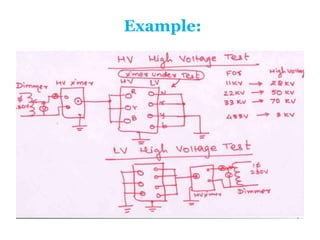 Example:
HV High Voltage Test
xmer under Test
HV LV
For High Voltag
11KV → 28 KV
22KV → 50 KV
33 KV → 70 KV
433V → 3 KV
Dimmer HV x'mer
1φ
230V
R
Y
B
n
r
y
b
LV High Voltage Test
1φ
230V
HV x'mer Dimmer